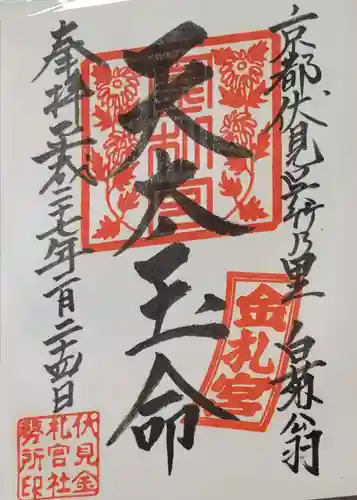 京都伏見久米乃里 白菊翁
天太玉命
奉拝 平成二十七年一月二十四日
金札宮
伏見金
札宮社
務所印